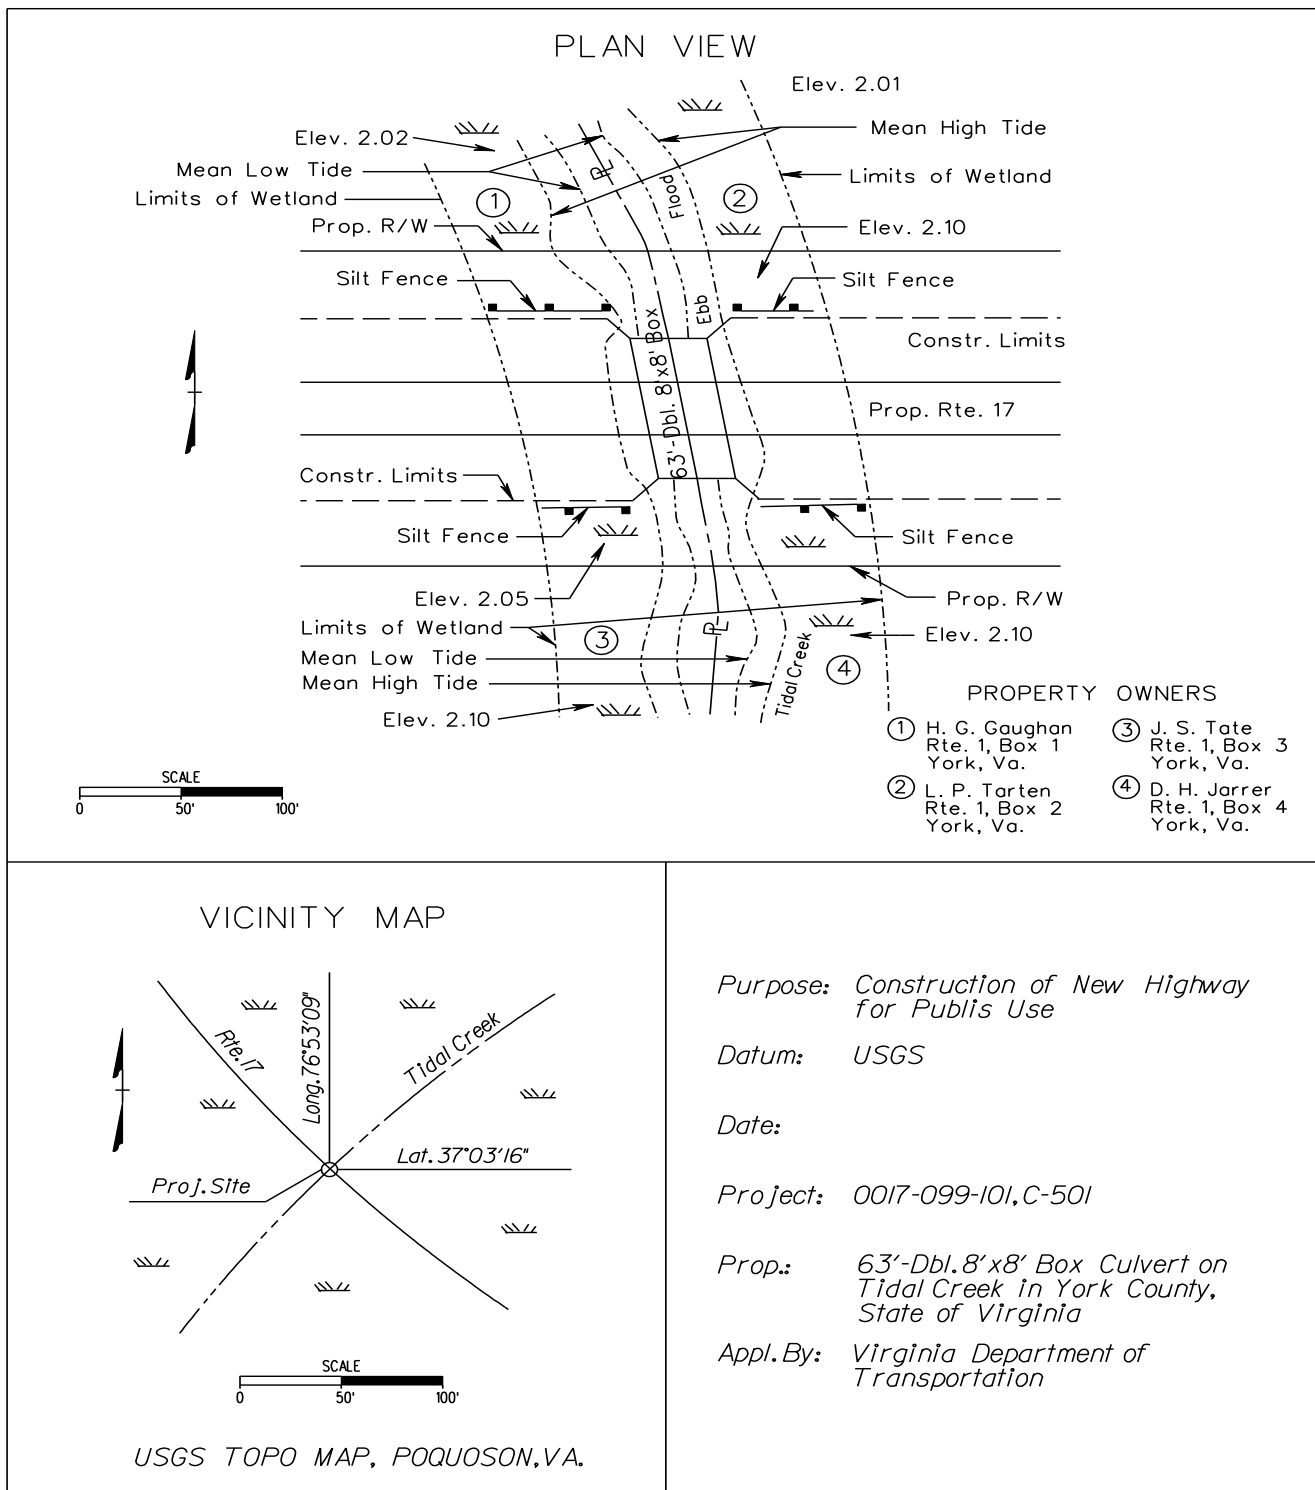 PLAN VIEW
Elev. 2.01
Elev. 2.02
Mean High Tide
Mean Low Tide
Limits of Wetland
Limits of Wetland
PL
Flood
1
2
Prop. R/W
Elev. 2.10
Silt Fence
Silt Fence
Ebb
63'-Dbl. 8'x8' Box
Constr. Limits
Prop. Rte. 17
Constr. Limits
Silt Fence
Silt Fence
Elev. 2.05
Prop. R/W
Limits of Wetland
3
PL
Elev. 2.10
Mean Low Tide
Tidal Creek
4
Mean High Tide
Elev. 2.10
PROPERTY OWNERS
1 H. G. Gaughan
Rte. 1, Box 1
York, Va.
3 J. S. Tate
Rte. 1, Box 3
York, Va.
2 L. P. Tarten
Rte. 1, Box 2
York, Va.
4 D. H. Jarrer
Rte. 1, Box 4
York, Va.
SCALE
0 50' 100'
VICINITY MAP
Rte. 17
Long. 76°53'09"
Tidal Creek
Lat. 37°03'16"
Proj. Site
SCALE
0 50' 100'
USGS TOPO MAP, POQUOSON, VA.
Purpose: Construction of New Highway
for Publis Use
Datum: USGS
Date:
Project: 0017-099-101, C-501
Prop.: 63'-Dbl. 8'x8' Box Culvert on
Tidal Creek in York County,
State of Virginia
Appl. By: Virginia Department of
Transportation